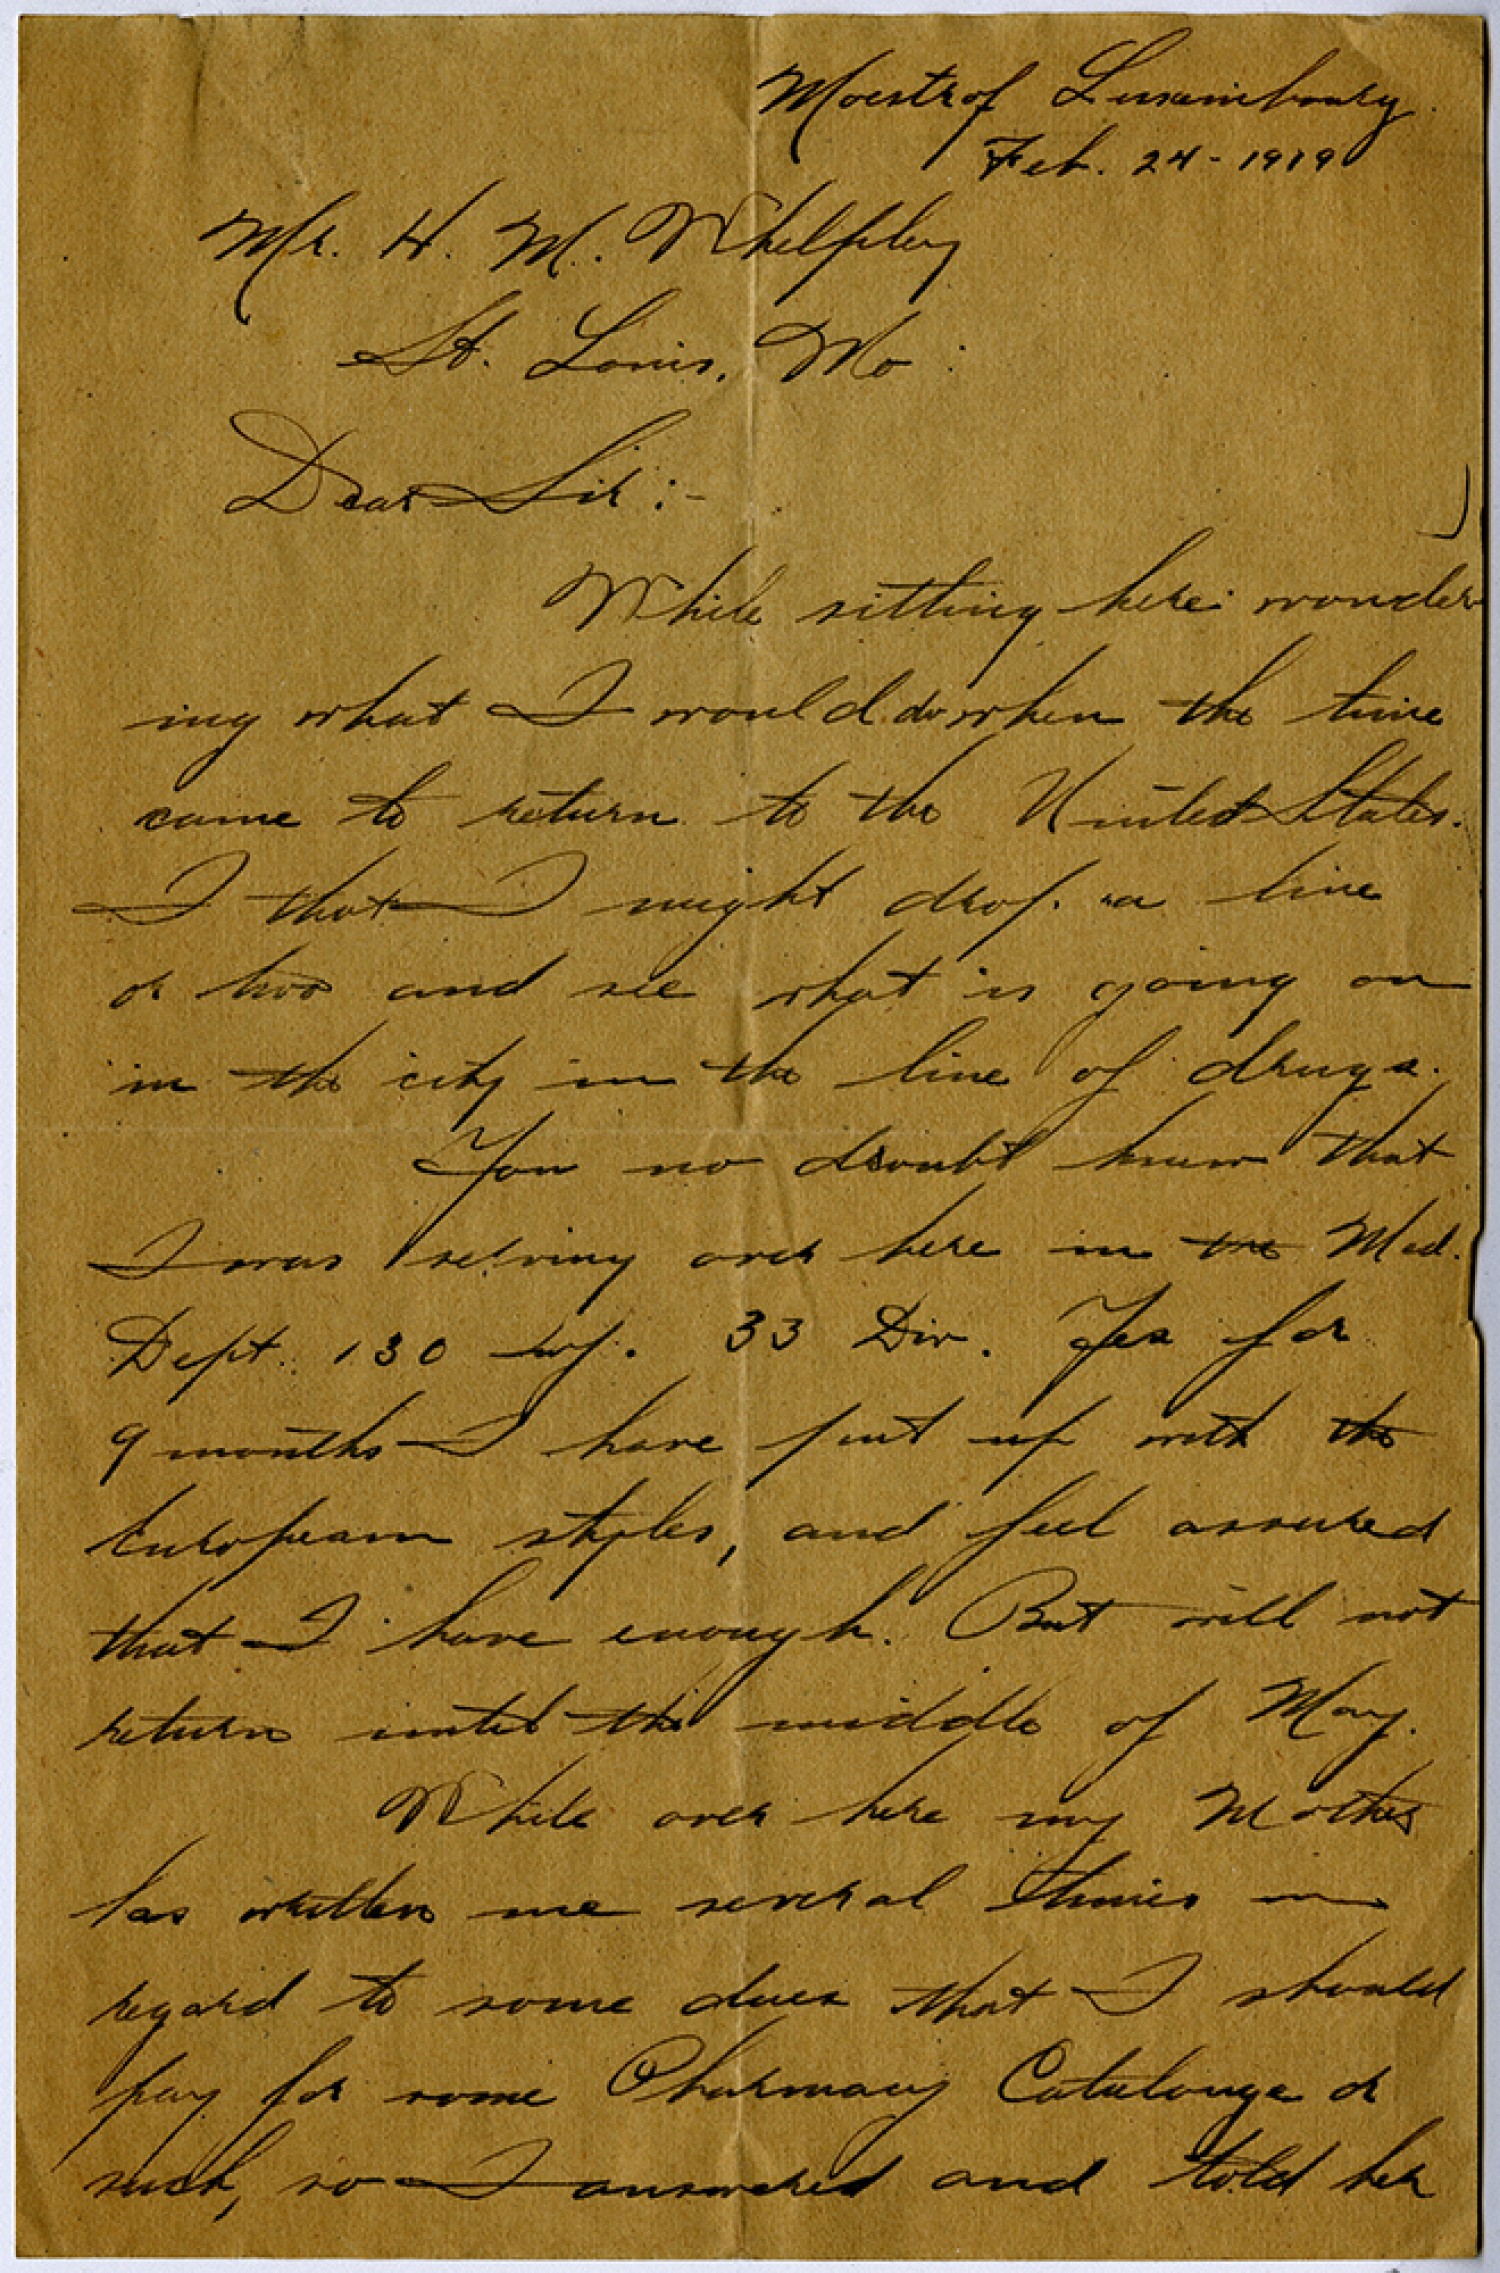 Moestrof Luxembourg
Feb. 24 - 1919
Mr. H. M. Whelpley
St. Louis, Mo.
Dear Sir:-
While sitting here wonder
ing what I would do when the time
came to return to the United States.
I that I might drop a line
or two and see what is going on
in the city in the line of drugs.
You no doubt know that
I was serving over here in the Med.
Dept. 130 Inf. 33 Div. Yes for
9 months I have put up with the
European styles, and feel assured
that I have enough. But will not
return until the middle of May.
While over here my Mother
has written me several times in
regard to some dues that I should
pay for some Pharmacy Catalouge or
such, so I answered and told her